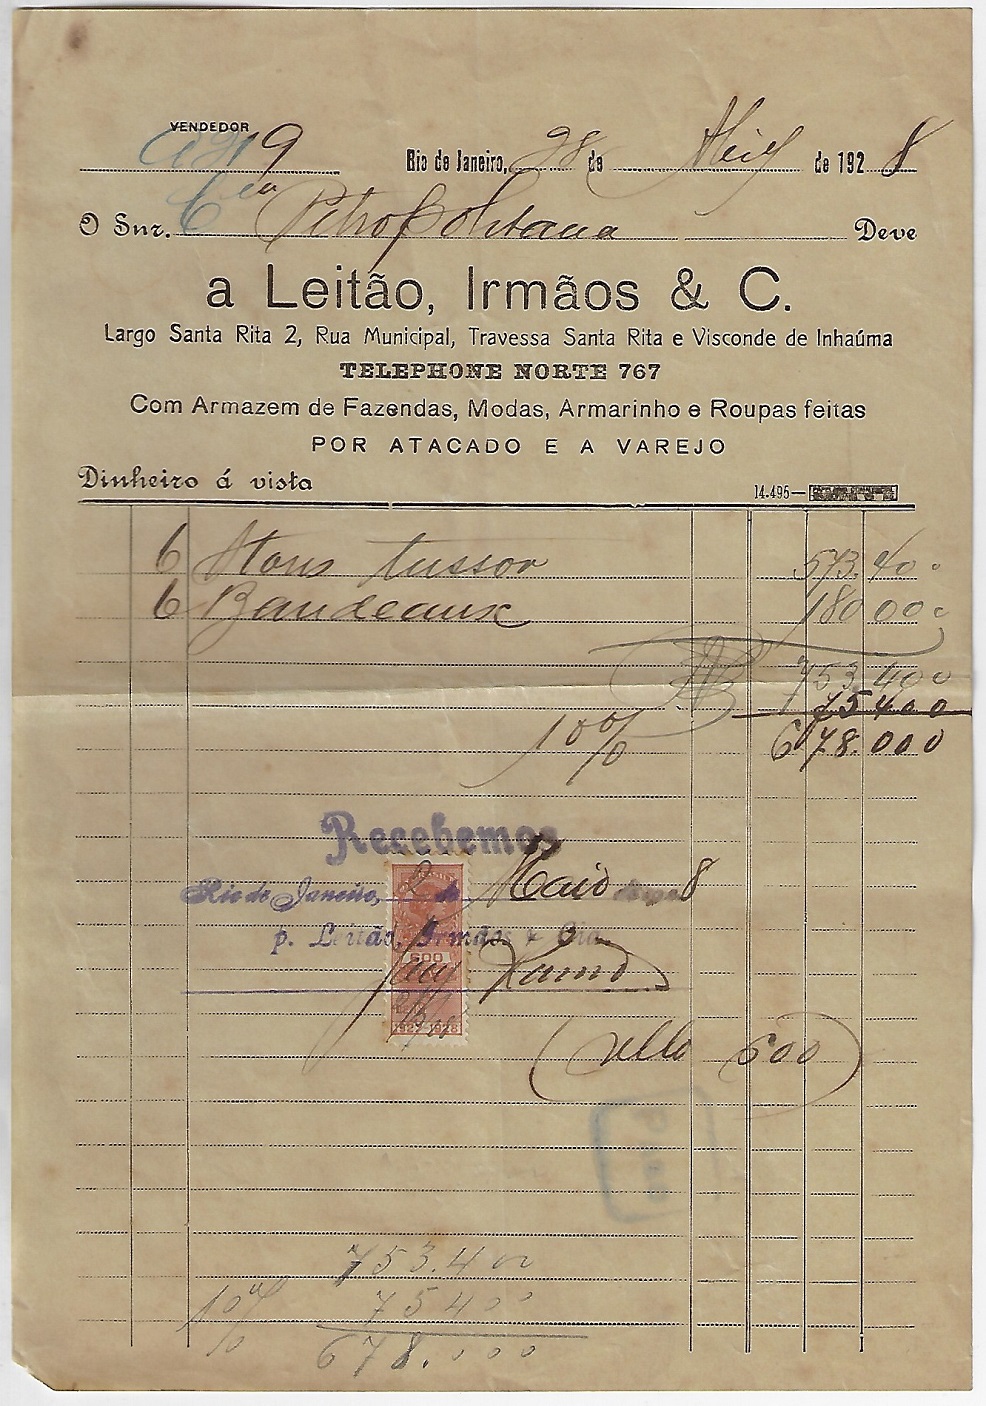 VENDEDOR
9
Rio de Janeiro, 28 de de 1928
O Snr. Cia Petropolitana Deve
a Leitão, Irmãos & C.
Largo Santa Rita 2, Rua Municipal, Travessa Santa Rita e Visconde de Inhaúma
TELEPHONE NORTE 767
Com Armazem de Fazendas, Modas, Armarinho e Roupas feitas
POR ATACADO E A VAREJO
Dinheiro á vista
14.495—
6 Stors tussor 573.400
6 Bandeaux 180 000
753.400
10% 75400
678.000
Recebemos
Rio de Janeiro, 2 de Maio de 8
p. Leitão, Irmãos & Cia.
600
1927-1928
(sello 600)
753.400
10% 75400
678.000